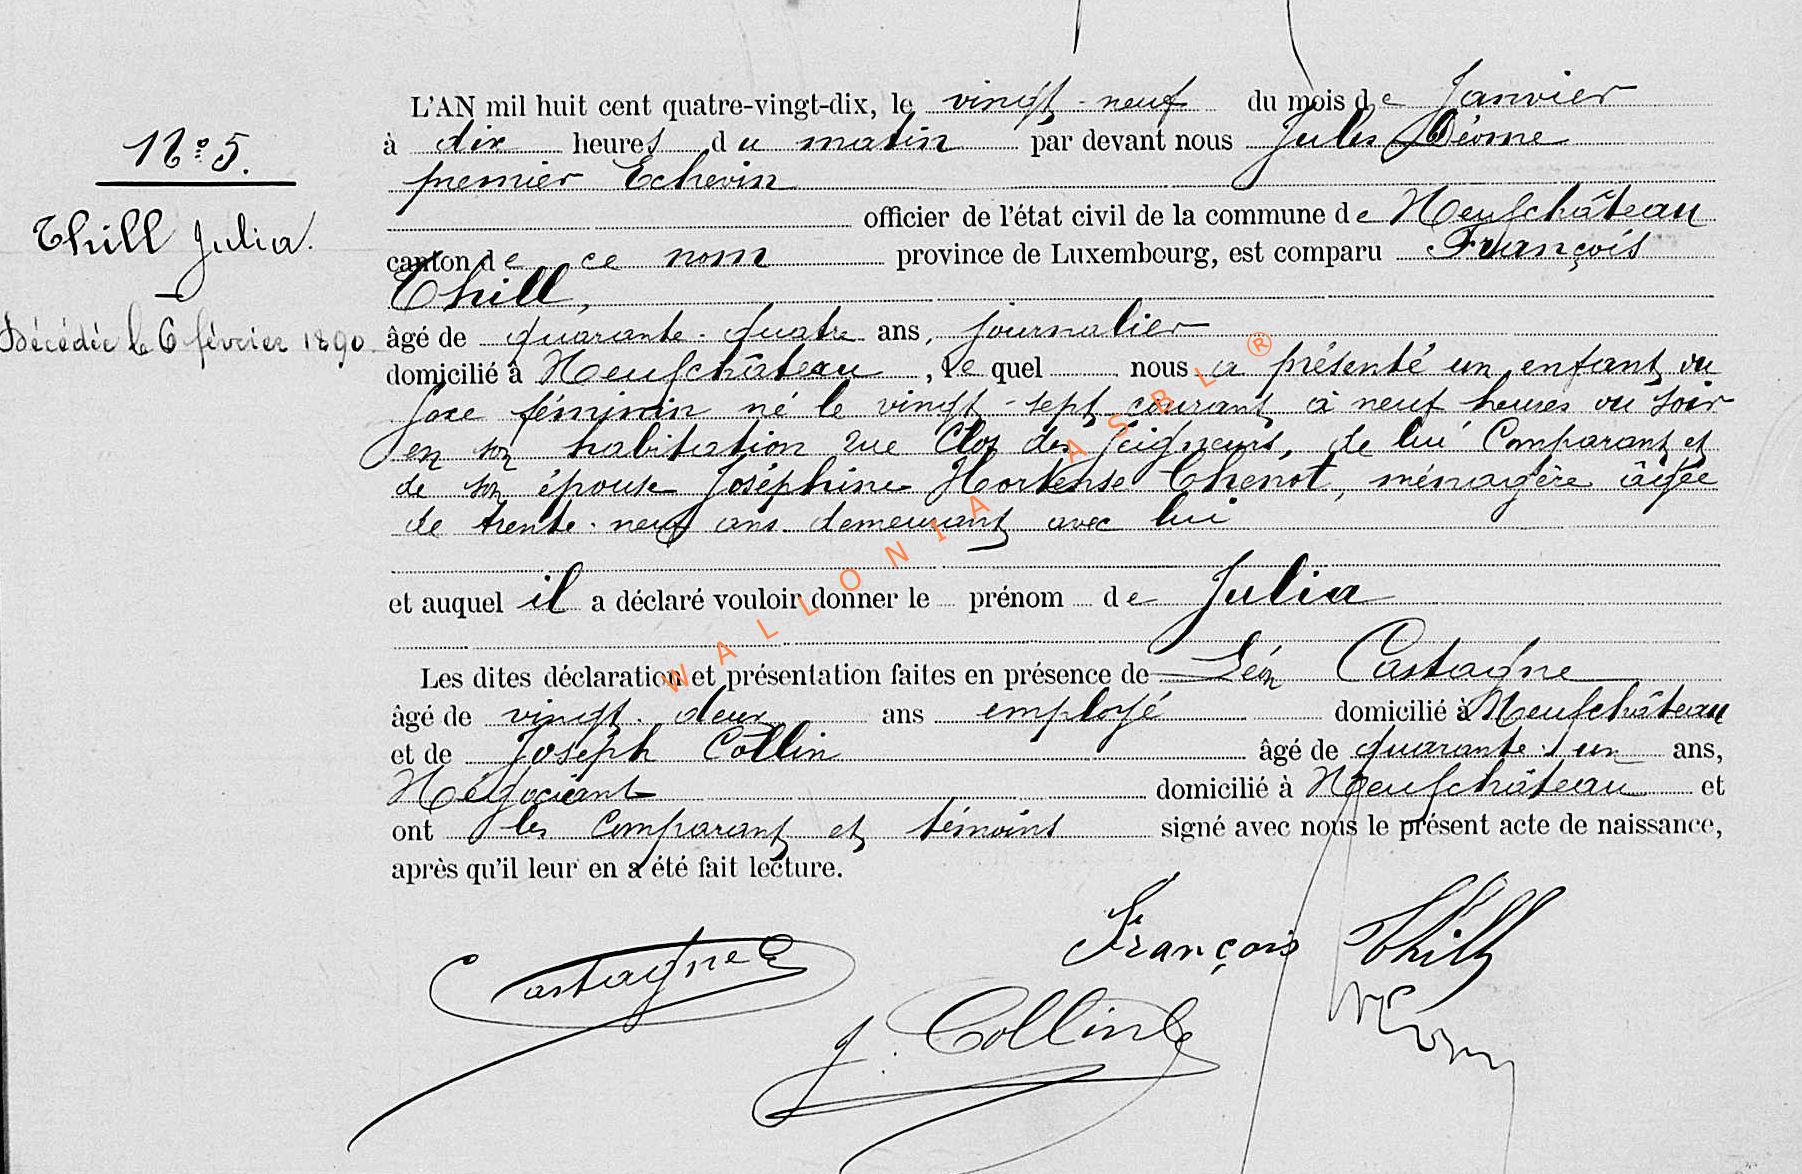 N° 5.
Thill Julia.
Décédée le 6 février 1890
L'AN mil huit cent quatre-vingt-dix, le vingt-neuf du mois de Janvier
à dix heures du matin par devant nous Jules
premier Echevin
officier de l'état civil de la commune de Neufchâteau
canton de ce nom province de Luxembourg, est comparu François
Thill,
âgé de quarante-quatre ans, journalier
domicilié à Neufchâteau, lequel nous a présenté un enfant du
sexe féminin né le vingt-sept courant à neuf heures du soir
en son habitation rue Clos des Seigneurs, de lui Comparant et
de son épouse Joséphine Hortense Chenot, ménagère âgée
de trente-neuf ans demeurant avec lui
et auquel il a déclaré vouloir donner le prénom de Julia
Les dites déclaration et présentation faites en présence de Léon Castagne
âgé de vingt-deux ans employé domicilié à Neufchâteau
et de Joseph Collin âgé de quarante-un ans,
Négociant domicilié à Neufchâteau et
ont les comparant et témoins signé avec nous le présent acte de naissance,
après qu'il leur en a été fait lecture.
François Thill
Castagne
J. Collin
WALLONIA ASBL ®